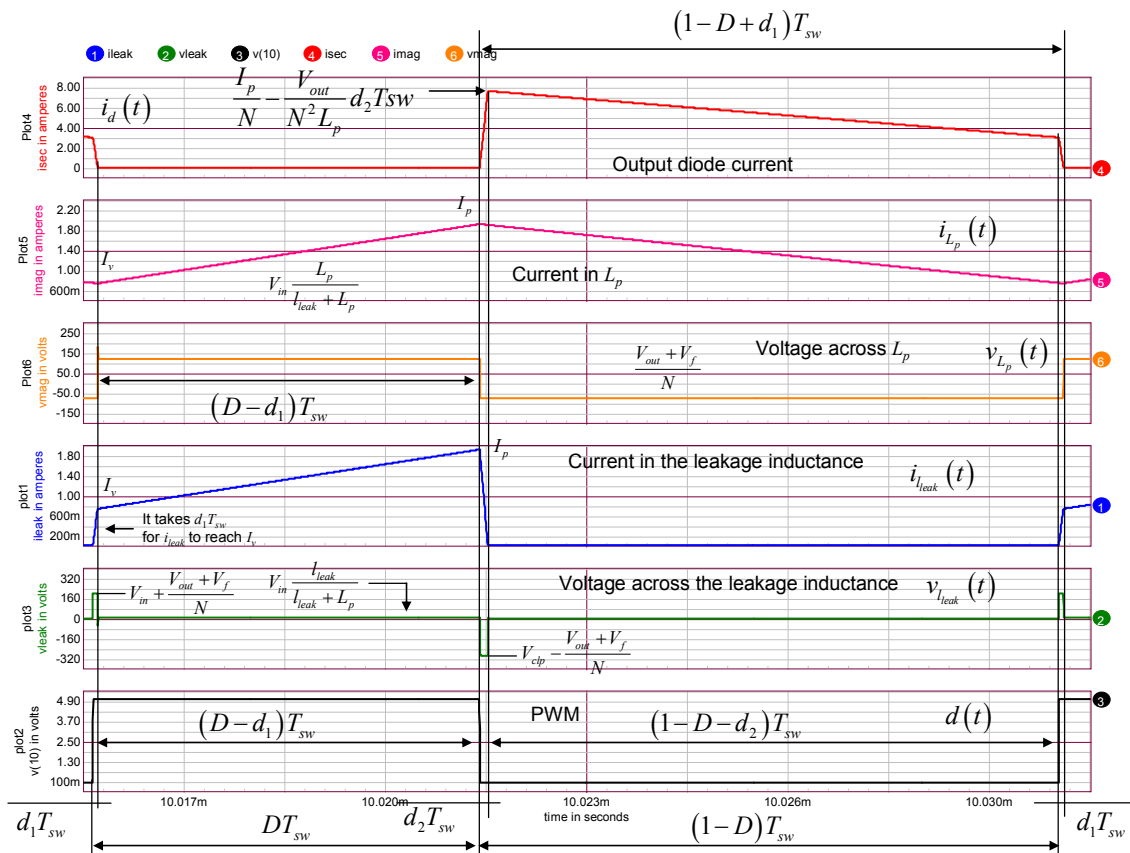 (1−D+d₁)T_sw
1 ileak 2 vleak 3 v(10) 4 isec 5 imag 6 vmag
Plot4
isec in amperes
8.00
6.00
4.00
2.00
0
i_d(t)
I_p/N − V_out/(N²L_p) d₂Tsw
Output diode current
4
Plot5
imag in amperes
2.20
1.80
1.40
1.00
600m
I_v
I_p
V_in L_p/(l_leak + L_p)
Current in L_p
i_{L_p}(t)
5
Plot6
vmag in volts
250
150
50.0
-50.0
-150
(D−d₁)T_sw
(V_out + V_f)/N
Voltage across L_p
v_{L_p}(t)
6
plot1
ileak in amperes
1.80
1.40
1.00
600m
200m
I_v
I_p
It takes d₁T_sw
for i_leak to reach I_v
Current in the leakage inductance
i_{l_leak}(t)
1
plot3
vleak in volts
320
160
0
-160
-320
V_in + (V_out + V_f)/N
V_in l_leak/(l_leak + L_p)
Voltage across the leakage inductance
v_{l_leak}(t)
V_clp − (V_out + V_f)/N
2
plot2
v(10) in volts
4.90
3.70
2.50
1.30
100m
(D−d₁)T_sw
PWM
(1−D−d₂)T_sw
d(t)
3
10.017m 10.020m 10.023m 10.026m 10.030m
time in seconds
d₁T_sw
DT_sw
d₂T_sw
(1−D)T_sw
d₁T_sw